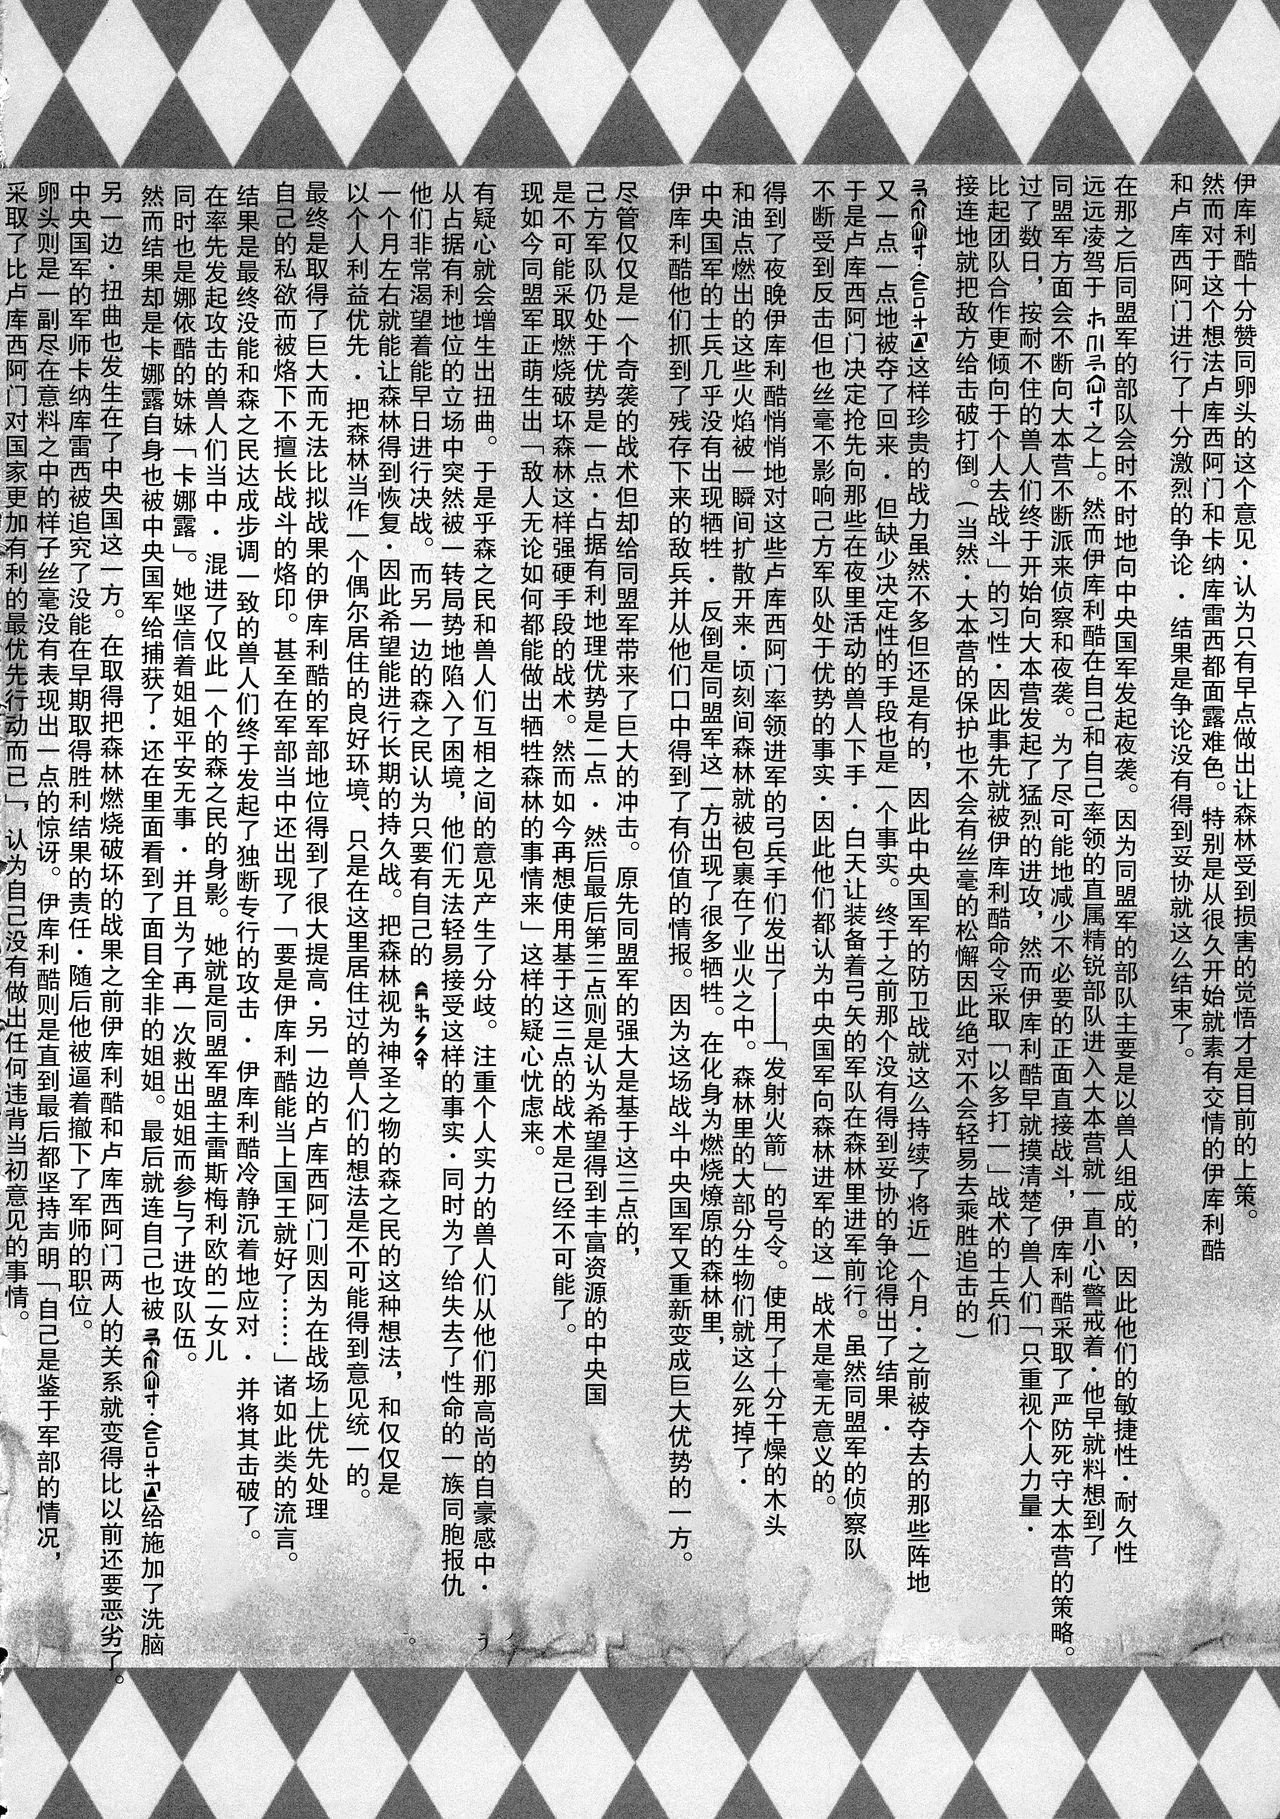 伊库利酷十分赞同卵头的这个意见·认为只有早点做出让森林受到损害的觉悟才是目前的上策。
然而对于这个想法卢库西阿门和卡纳库雷西都面露难色。特别是从很久开始就素有交情的伊库利酷
和卢库西阿门进行了十分激烈的争论·结果是争论没有得到妥协就这么结束了。
在那之后同盟军的部队会时不时地向中央国军发起夜袭。因为同盟军的部队主要是以兽人组成的，因此他们的敏捷性·耐久性
远远凌驾于之上。然而伊库利酷在自己和自己率领的直属精锐部队进入大本营就一直小心警戒着·他早就料想到了
同盟军方面会不断向大本营不断派来侦察和夜袭。为了尽可能地减少不必要的正面直接战斗，伊库利酷采取了严防死守大本营的策略。
过了数日，按耐不住的兽人们终于开始向大本营发起了猛烈的进攻，然而伊库利酷早就摸清楚了兽人们「只重视个人力量·
比起团队合作更倾向于个人去战斗」的习性·因此事先就被伊库利酷命令采取「以多打一」战术的士兵们
接连地就把敌方给击破打倒。(当然·大本营的保护也不会有丝毫的松懈因此绝对不会轻易去乘胜追击的)
这样珍贵的战力虽然不多但还是有的，因此中央国军的防卫战就这么持续了将近一个月·之前被夺去的那些阵地
又一点一点地被夺了回来·但缺少决定性的手段也是一个事实。终于之前那个没有得到妥协的争论得出了结果·
于是卢库西阿门决定抢先向那些在夜里活动的兽人下手·白天让装备着弓矢的军队在森林里进军前行。虽然同盟军的侦察队
不断受到反击但也丝毫不影响己方军队处于优势的事实·因此他们都认为中央国军向森林进军的这一战术是毫无意义的。
得到了夜晚伊库利酷悄悄地对这些卢库西阿门率领进军的弓兵手们发出了——「发射火箭」的号令。使用了十分干燥的木头
和油点燃出的这些火焰被一瞬间扩散开来·顷刻间森林就被包裹在了业火之中。森林里的大部分生物们就这么死掉了·
中央国军的士兵几乎没有出现牺牲·反倒是同盟军这一方出现了很多牺牲。在化身为燃烧燎原的森林里，
伊库利酷他们抓到了残存下来的敌兵并从他们口中得到了有价值的情报。因为这场战斗中央国军又重新变成巨大优势的一方。
尽管仅仅是一个奇袭的战术但却给同盟军带来了巨大的冲击。原先同盟军的强大是基于这三点的，
己方军队仍处于优势是一点·占据有利地理优势是二点·然后最后第三点则是认为希望得到丰富资源的中央国
是不可能采取燃烧破坏森林这样强硬手段的战术。然而如今再想使用基于这三点的战术是已经不可能了。
现如今同盟军正萌生出「敌人无论如何都能做出牺牲森林的事情来」这样的疑心忧虑来。
有疑心就会增生出扭曲。于是乎森之民和兽人们互相之间的意见产生了分歧。注重个人实力的兽人们从他们那高尚的自豪感中·
从占据有利地位的立场中突然被一转局势地陷入了困境，他们无法轻易接受这样的事实·同时为了给失去了性命的一族同胞报仇
他们非常渴望着能早日进行决战。而另一边的森之民认为只要有自己的
一个月左右就能让森林得到恢复·因此希望能进行长期的持久战。把森林视为神圣之物的森之民的这种想法，和仅仅是
以个人利益优先·把森林当作一个偶尔居住的良好环境、只是在这里居住过的兽人们的想法是不可能得到意见统一的。
最终是取得了巨大而无法比拟战果的伊库利酷的军部地位得到了很大提高·另一边的卢库西阿门则因为在战场上优先处理
自己的私欲而被烙下不擅长战斗的烙印。甚至在军部当中还出现了「要是伊库利酷能当上国王就好了……」诸如此类的流言。
结果是最终没能和森之民达成步调一致的兽人们终于发起了独断专行的攻击·伊库利酷冷静沉着地应对·并将其击破了。
在率先发起攻击的兽人们当中·混进了仅此一个的森之民的身影。她就是同盟军盟主雷斯梅利欧的二女儿
同时也是娜依酷的妹妹「卡娜露」。她坚信着姐姐平安无事·并且为了再一次救出姐姐而参与了进攻队伍。
然而结果却是卡娜露自身也被中央国军给捕获了·还在里面看到了面目全非的姐姐。最后就连自己也被给施加了洗脑
另一边·扭曲也发生在了中央国这一方。在取得把森林燃烧破坏的战果之前伊库利酷和卢库西阿门两人的关系就变得比以前还要恶劣了。
中央国军的军师卡纳库雷西被追究了没能在早期取得胜利结果的责任·随后他被逼着撤下了军师的职位。
卵头则是一副尽在意料之中的样子丝毫没有表现出一点的惊讶。伊库利酷则是直到最后都坚持声明「自己是鉴于军部的情况，
采取了比卢库西阿门对国家更加有利的最优先行动而已」，认为自己没有做出任何违背当初意见的事情。